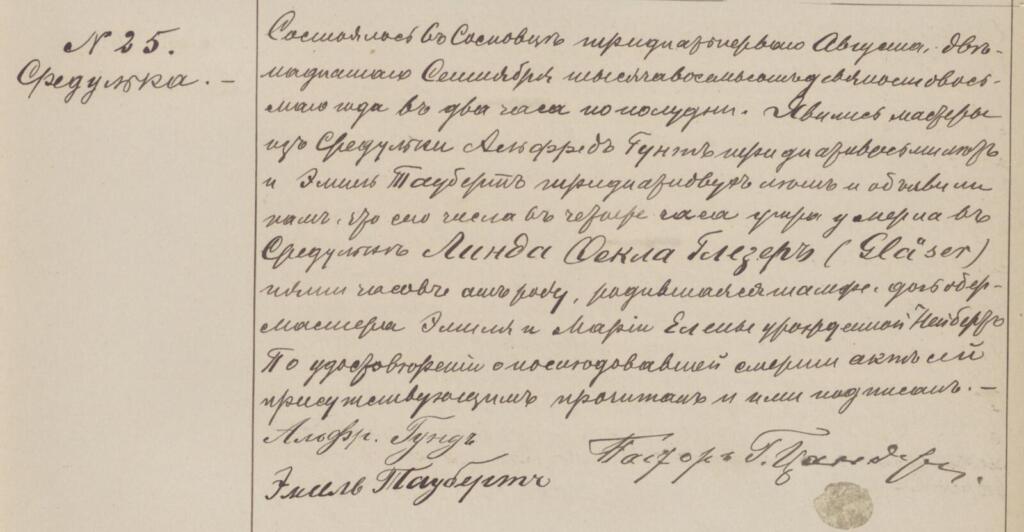 N 25.
Средулька. –
Состоялось въ Сосновцѣ тридцать перваго Августа, двѣ-
надцатаго Сентября тысяча восемьсотъ девяносто вось-
маго года въ два часа по полудни. Явились мастеры
изъ Средульки Альфредъ Гунтъ тридцати восьми лѣтъ
и Эмиль Таубертъ тридцати двухъ лѣтъ и объявили
намъ, что сего числа въ четыре часа утра умерла въ
Средулькѣ Линда Фекла Глезеръ (Gläser)
пяти часовъ отъ роду, родившаяся тамже, дочь обер-
мастера Эмиля и Маріи Елены урожденной Нейбертъ
По удостовѣреніи о послѣдовавшей смерти актъ сей
присутствующимъ прочитанъ и ими подписанъ. –
Альфр. Гундъ
Эмиль Таубертъ
Пасторъ Г. Цандеръ.